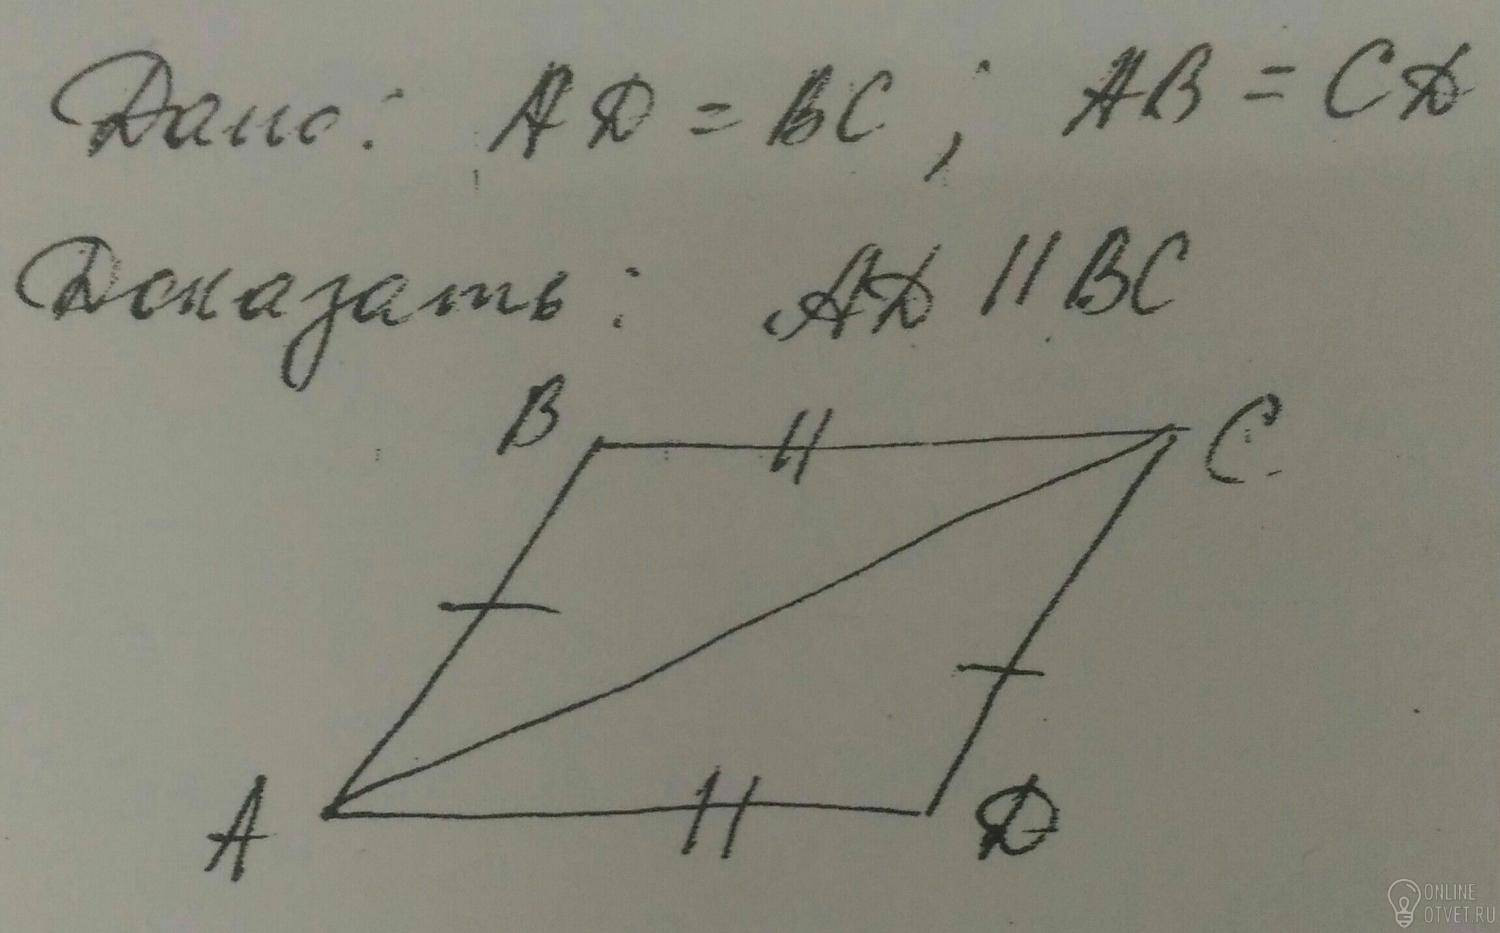 Дано: AD = BC; AB = CD
Доказать: AD || BC
B
C
A
D
ONLINE
OTVET.RU